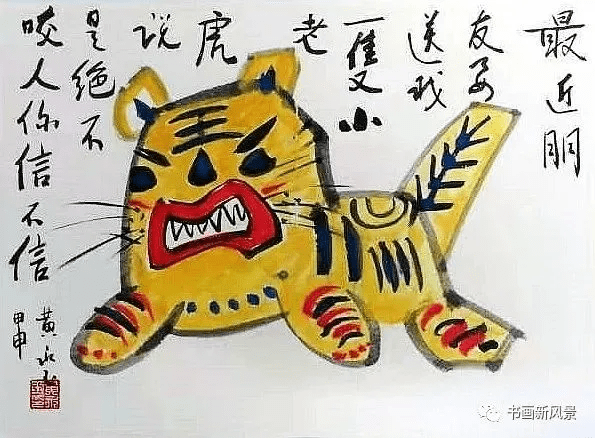 最近朋
友要
送我
一隻小
老
虎
说
是绝不
咬人你信不信
黄永玉
甲申
书画新风景